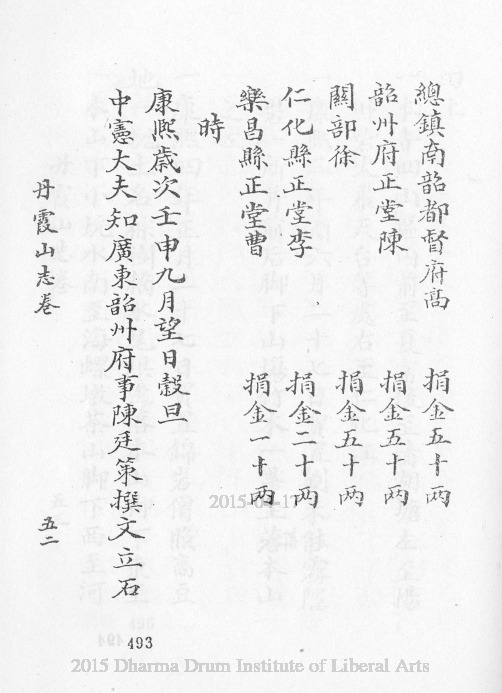 總鎮南韶都督府高　捐金五十兩
韶州府正堂陳　捐金五十兩
關部徐　捐金五十兩
仁化縣正堂李　捐金二十兩
樂昌縣正堂曹　捐金一十兩
時
康熙歲次壬申九月望日穀旦
中憲大夫知廣東韶州府事陳廷策撰文立石
丹霞山志卷　五二
493
2015 Dharma Drum Institute of Liberal Arts